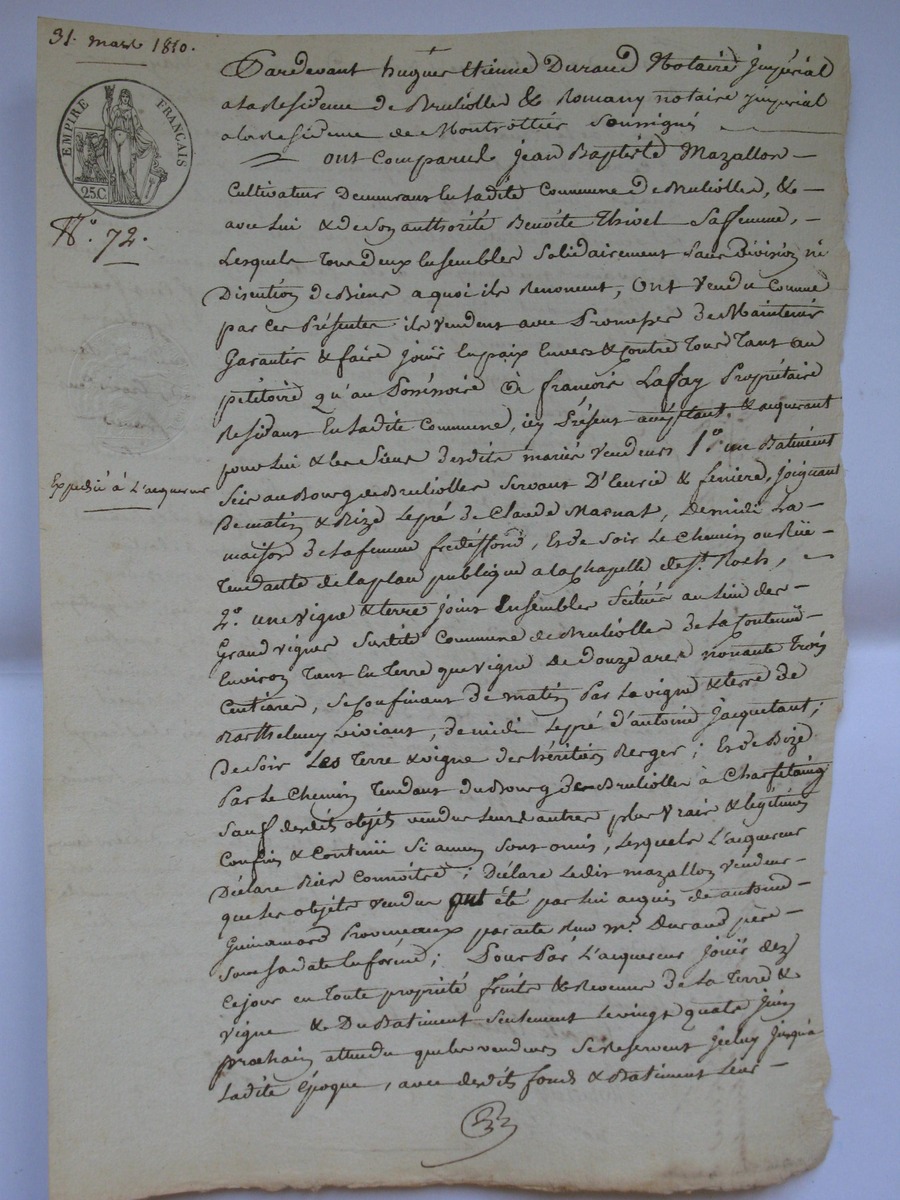 31. mars 1810.
EMPIRE FRANÇAIS
25C
N.o 72.
Expedié à L'acquereur
Pardevant hugues Etienne Durand Notaire Jmpérial
a la Residence de Brulliolles & Romany notaire jmperial
a la residence de Montrottier Soussignés
ont Comparu Jean Baptiste Mazallon
Cultivateur Demeurant en Ladite Commune de Brulliolles, &
avec Lui & de Son authorité Benoite Thivel Sa femme,
Lesquels Tous deux Ensembles Solidairement Sans Division ni
Discution de Biens a quoi ils Renoncent, Ont Vendu Comme
par Ces Présentes ils vendent avec Promesses de Maintenir
Garantir & faire Jouir En paix Envers & Contre Tous Tant au
pétitoire qu'au Possessoire à françois Lafay Propriétaire
Residant En Ladite Commune, icy Présent acceptant & acquerant
pour Lui & les Siens desdits mariés vendeurs 1.o un Batiment
Scis au Bourg de Brulliolles Servant D'Ecurie & feniere, joignant
De matin & Bize Le pré de Claude Marnas, De midi La
maison de La femme fredesfond, Es de Soir Le Chemin ou Rüe
Tendante de la place publique a la Chapelle de St. Roch,
2.o une vigne & terre joints Ensembles Scitués au Lieu des
Grand vignes Surdite Commune de Brulliolles de La Contenüe
Environ Tant En Terre que vigne de douze ares nonante Trois
Centiares, Se Confinant de matin Par La vigne & terre de
Barthelemy Liviant, de midi Le pré d'antoine Jacquetant;
De Soir Les Terre & vigne des héritiers Berger; Es de Bize
Par Le Chemin Tendant du Bourg de Brulliolles à
Sauf desdits objets vendus Leurs autres plus Vrais & légitimes
Confins & Contenüe Si aucuns Sont omis, Lesquels L'acquereur
Déclare Bien Connoitre; Déclare Ledit mazallon vendeur
que les objets vendus ont été par lui acquis de antoine
Guinamard par acte Reçu Me. Durand père
Sous Sa date En forme; Pour Par L'acquereur Jouir dez
Ce jour en Toute propriété fruits & Revenus de La Terre &
vigne & Du Batiment Seulement Le vingt quatre Juin
prochain attendu que les vendeurs Se Reservent Jcelui Jusqu'a
Ladite Epoque, avec desdits fonds & Batiment Leurs